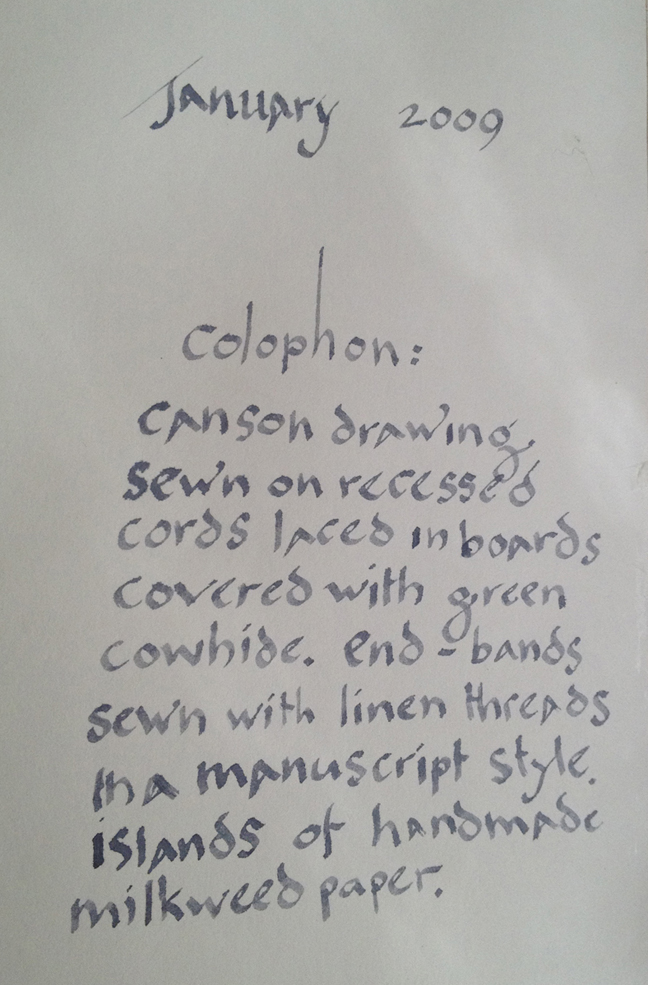 January 2009
Colophon:
Canson drawing.
sewn on recessed
cords laced in boards
covered with green
cowhide. End-bands
sewn with linen threads
in a manuscript style.
islands of handmade
milkweed paper.